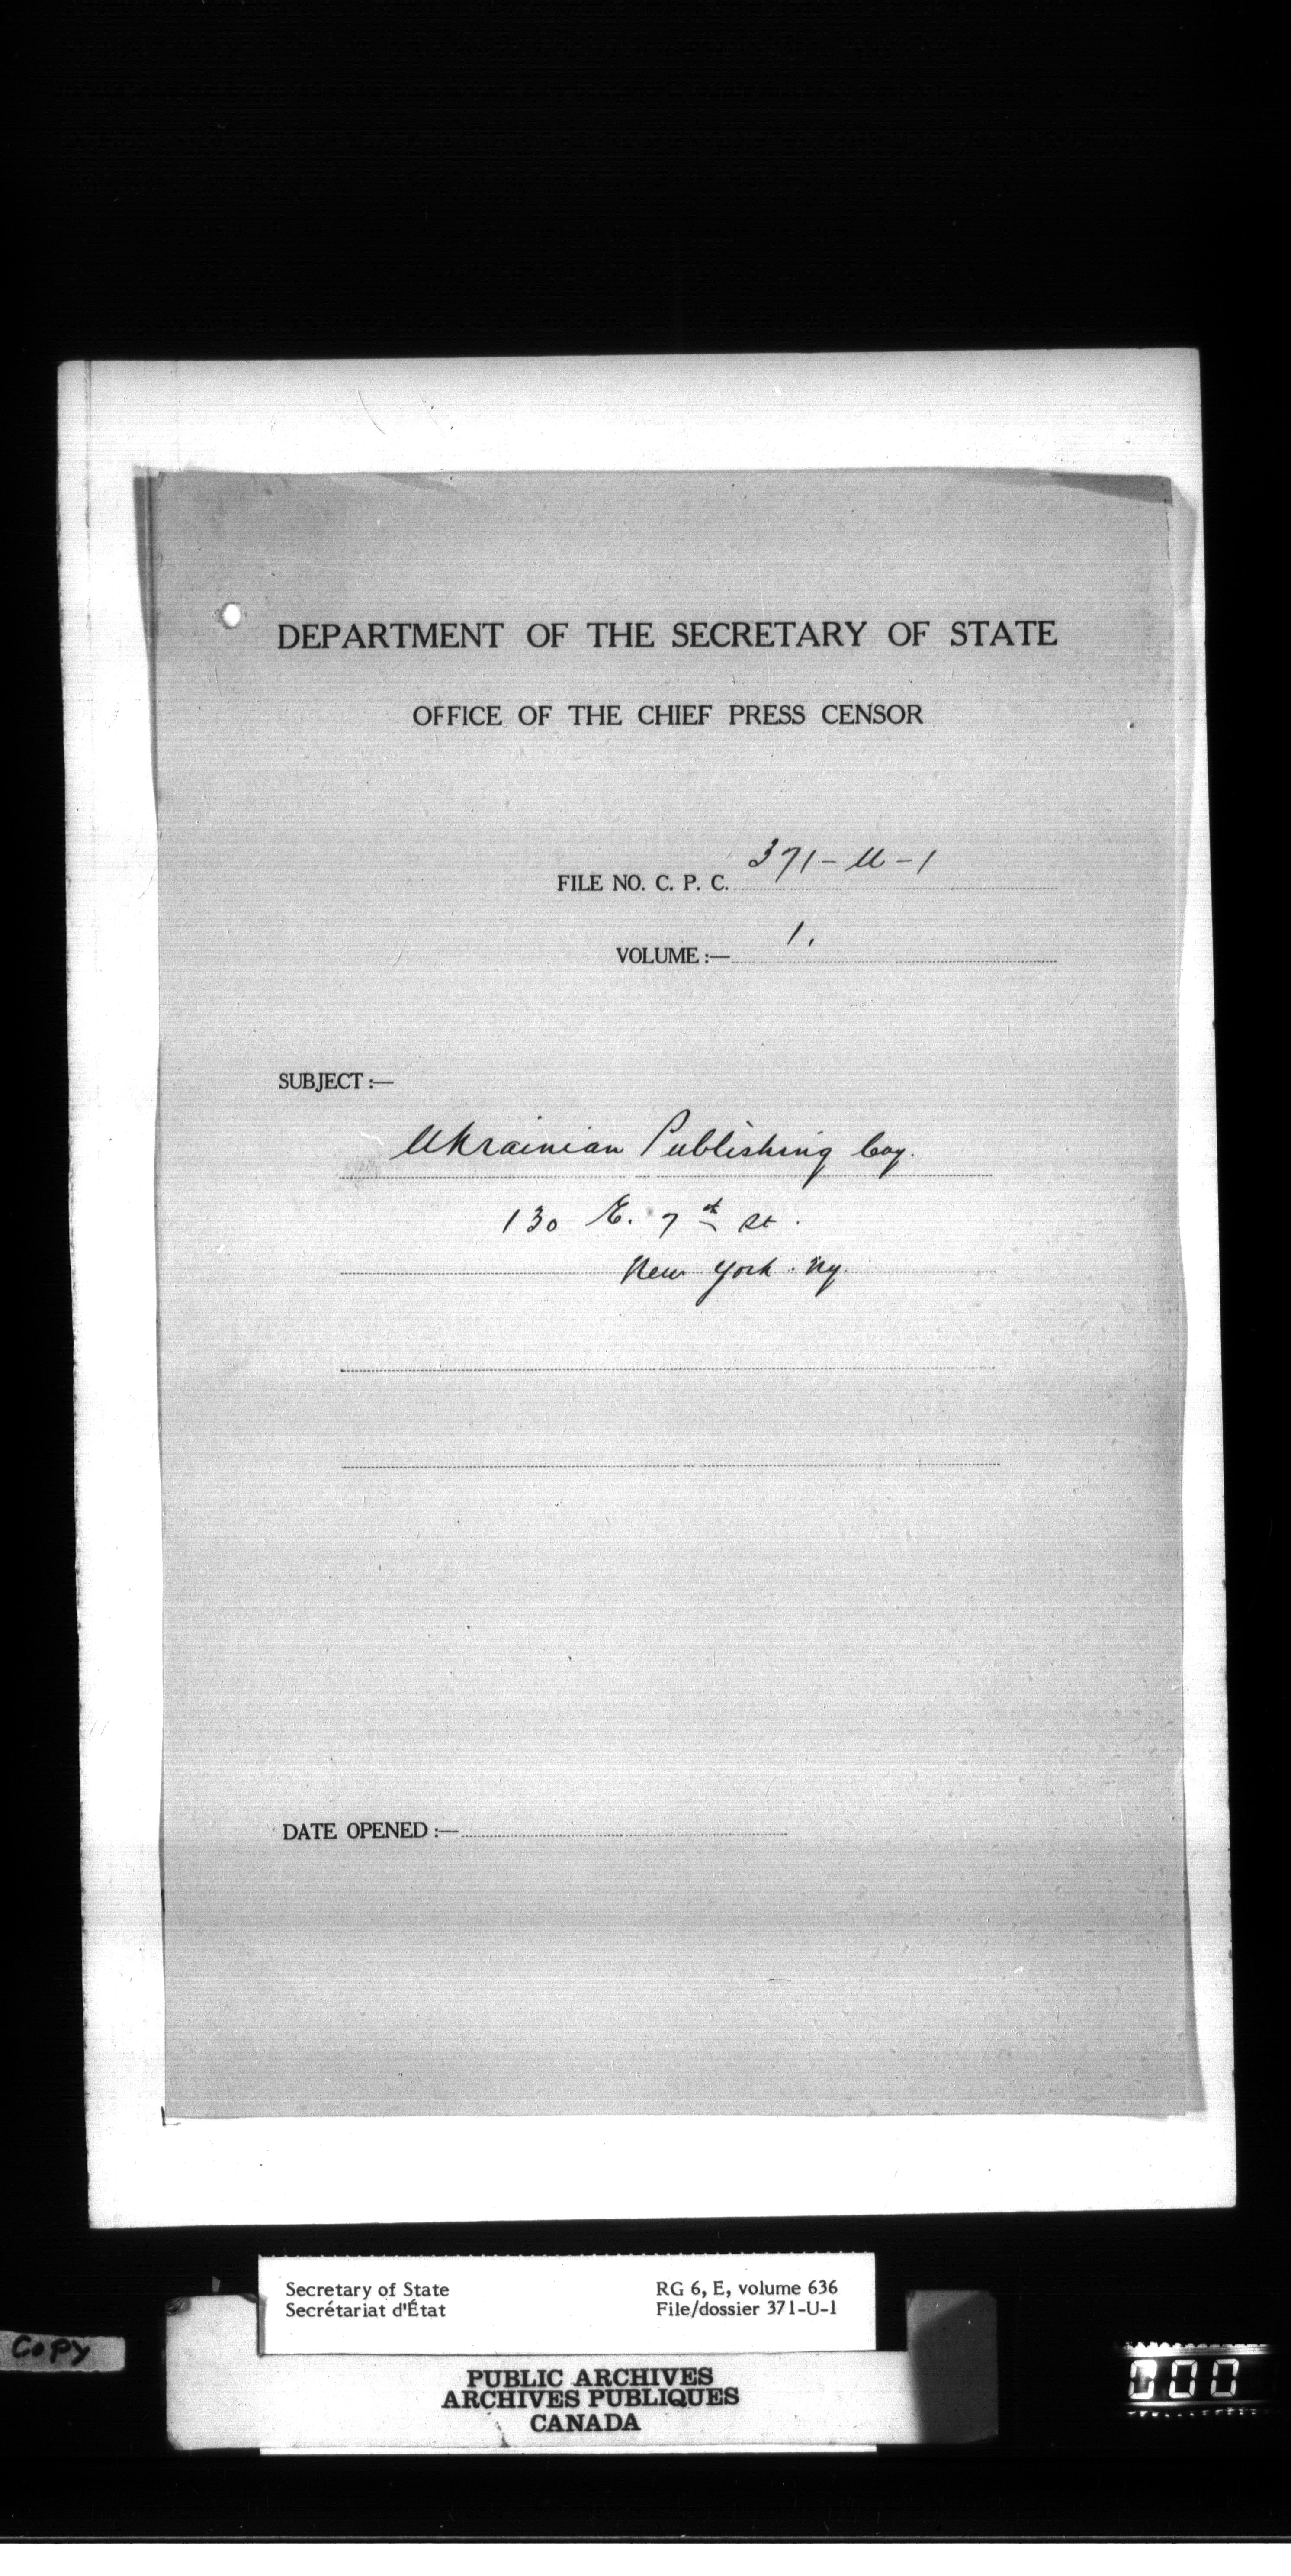 DEPARTMENT OF THE SECRETARY OF STATE
OFFICE OF THE CHIEF PRESS CENSOR
FILE NO. C. P. C. 371-U-1
VOLUME :— 1.
SUBJECT :—
Ukrainian Publishing Coy.
130 E. 7th St.
New York. Ny.
DATE OPENED :—
Secretary of State
Secrétariat d'État
RG 6, E, volume 636
File/dossier 371-U-1
COPY
PUBLIC ARCHIVES
ARCHIVES PUBLIQUES
CANADA
000